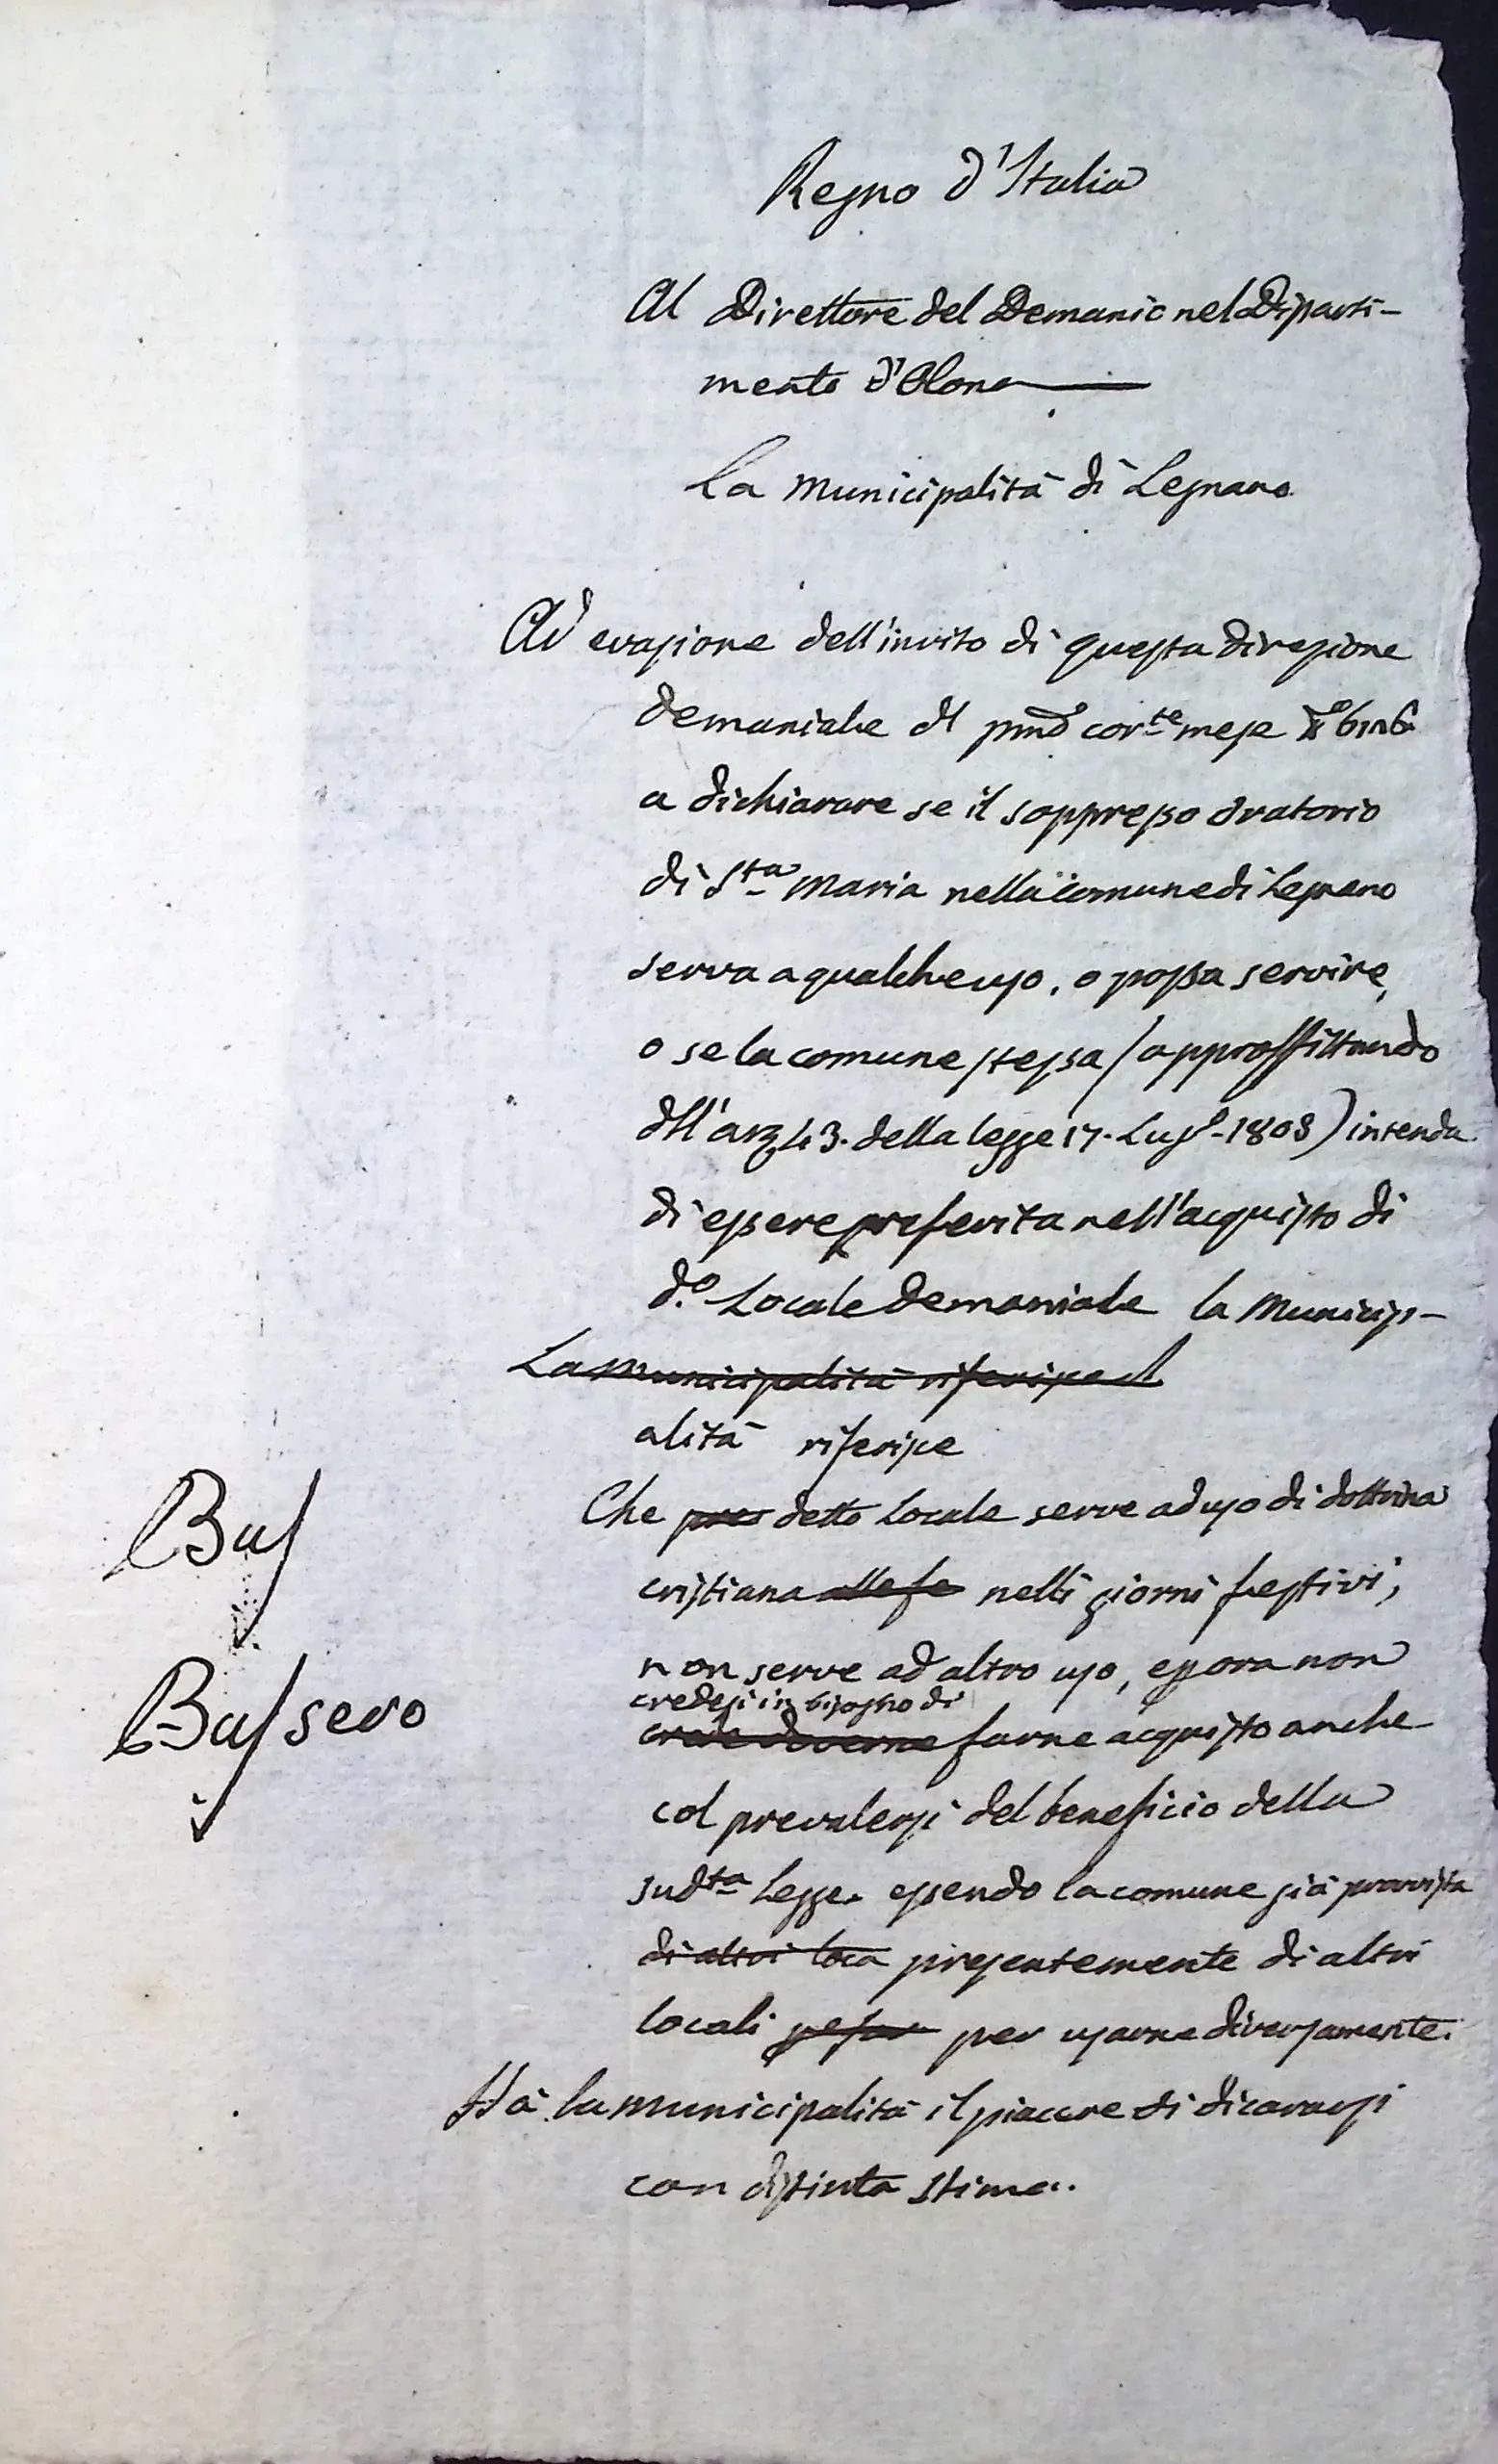 Regno d'Italia
Al Direttore del Demanio nel Diparti-
mento d'Olona
La Municipalità di Legnano
Ad evasione dell'invito di questa direzione
demaniale dl pmo cor.te mese
a dichiarare se il soppresso oratorio
di S.ta Maria nella comune di Legnano
serva a qualche uso, o possa servire,
o se la comune stessa (approffittando
dll'art 43. della legge 17. Lugo. 1803) intenda
di essere preferita nell'acquisto di
d.o Locale demaniale la Municip-
La Municipalità riferisce
alità riferisce
Che detto Locale serve ad uso di dottrina
cristiana nelli giorni festivi,
non serve ad altro uso, essora non
credesi in bisogno di
farne acquisto anche
col prevalersi del beneficio della
sud.ta Legge. essendo la comune già provvista
di altri loca presentemente di altri
locali per usarne diversamente.
Hà la municipalità il piacere di dicararsi
con distinta stima.
Bus
Bussero